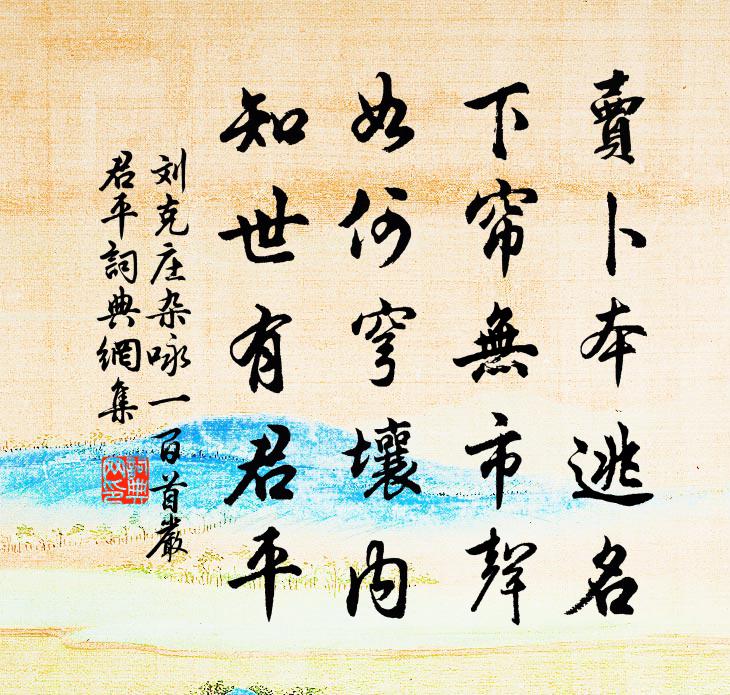 賣卜本逃名
下帘無市聲
如何穹壤內
知世有君平
刘克庄杂咏一百首嚴
君平詞典網集